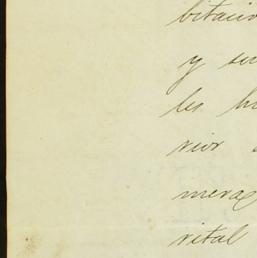 bitacio
y su
les h
rior
meras
vital